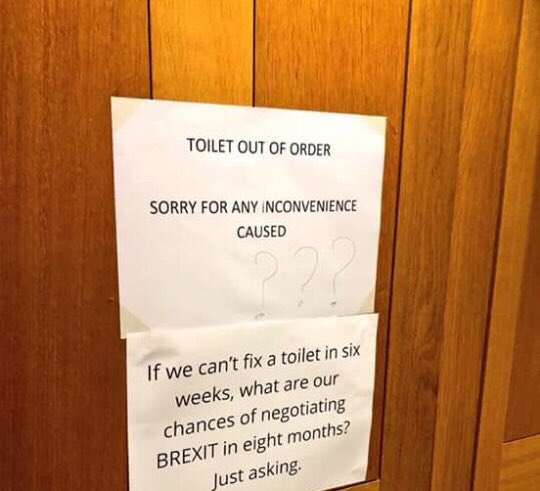 TOILET OUT OF ORDER
SORRY FOR ANY INCONVENIENCE
CAUSED
???
If we can't fix a toilet in six
weeks, what are our
chances of negotiating
BREXIT in eight months?
Just asking.